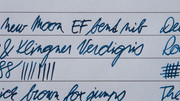 new Moon EF bend nib De
& Klingner Verdigris Ro
brown fox jumps The